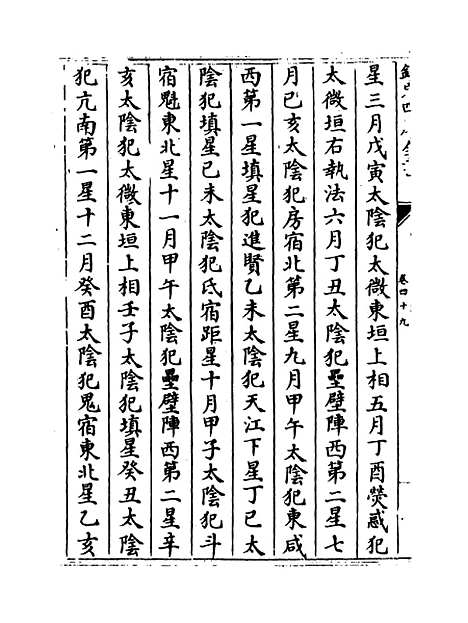 欽定四庫全書
卷四十九
星三月戊寅太陰犯太微東垣上相五月丁酉熒惑犯
太微垣右執法六月丁丑太陰犯壘壁陣西第二星七
月已亥太陰犯房宿北第二星九月甲午太陰犯東咸
西第一星填星犯進賢乙未太陰犯天江下星丁已太
陰犯填星已未太陰犯氐宿距星十月甲子太陰犯斗
宿魁東北星十一月甲午太陰犯壘壁陣西第二星辛
亥太陰犯太微東垣上相壬子太陰犯填星癸丑太陰
犯亢南第一星十二月癸酉太陰犯鬼宿東北星乙亥